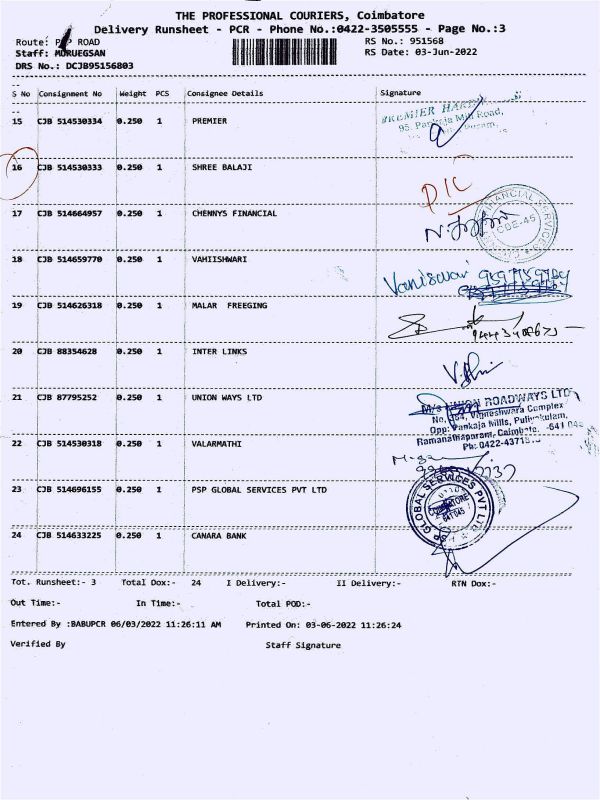 THE PROFESSIONAL COURIERS, Coimbatore
Delivery Runsheet - PCR - Phone No.:0422-3505555 - Page No.:3
Route: P P ROAD RS No.: 951568
Staff: MURUEGSAN RS Date: 03-Jun-2022
DRS No.: DCJB95156803
S No Consignment No Weight PCS Consignee Details Signature
15 CJB 514530334 0.250 1 PREMIER
PREMIER
95, Pankaja Mill Road,
16 CJB 514530333 0.250 1 SHREE BALAJI
DIC
17 CJB 514664957 0.250 1 CHENNYS FINANCIAL
FINANCIAL SERVICES
CBE-45
18 CJB 514659770 0.250 1 VAHIISHWARI
19 CJB 514626318 0.250 1 MALAR FREEGING
20 CJB 88354628 0.250 1 INTER LINKS
21 CJB 87795252 0.250 1 UNION WAYS LTD
M/s UNION ROADWAYS LTD
Vigneshwara Complex
Opp: Pankaja Mills, Puliyakulam,
Ramanathapuram, Coimbatore, -641 045
Ph: 0422-4371
22 CJB 514530318 0.250 1 VALARMATHI
23 CJB 514696155 0.250 1 PSP GLOBAL SERVICES PVT LTD
GLOBAL SERVICES PVT LTD
COIMBATORE
641 045
24 CJB 514633225 0.250 1 CANARA BANK
Tot. Runsheet:- 3 Total Dox:- 24 I Delivery:- II Delivery:- RTN Dox:-
Out Time:- In Time:- Total POD:-
Entered By :BABUPCR 06/03/2022 11:26:11 AM Printed On: 03-06-2022 11:26:24
Verified By Staff Signature